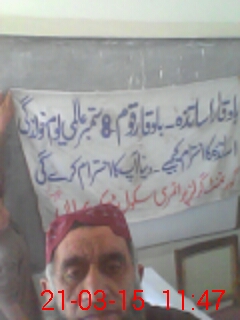 باوقار اساتذہ - باوقار قوم - 8 ستمبر عالمی یوم خواندگی
اساتذہ کا احترام کیجیے - دنیا آپ کا احترام کرے گی
گورنمنٹ گرلز پرائمری سکول
21-03-15 11:47